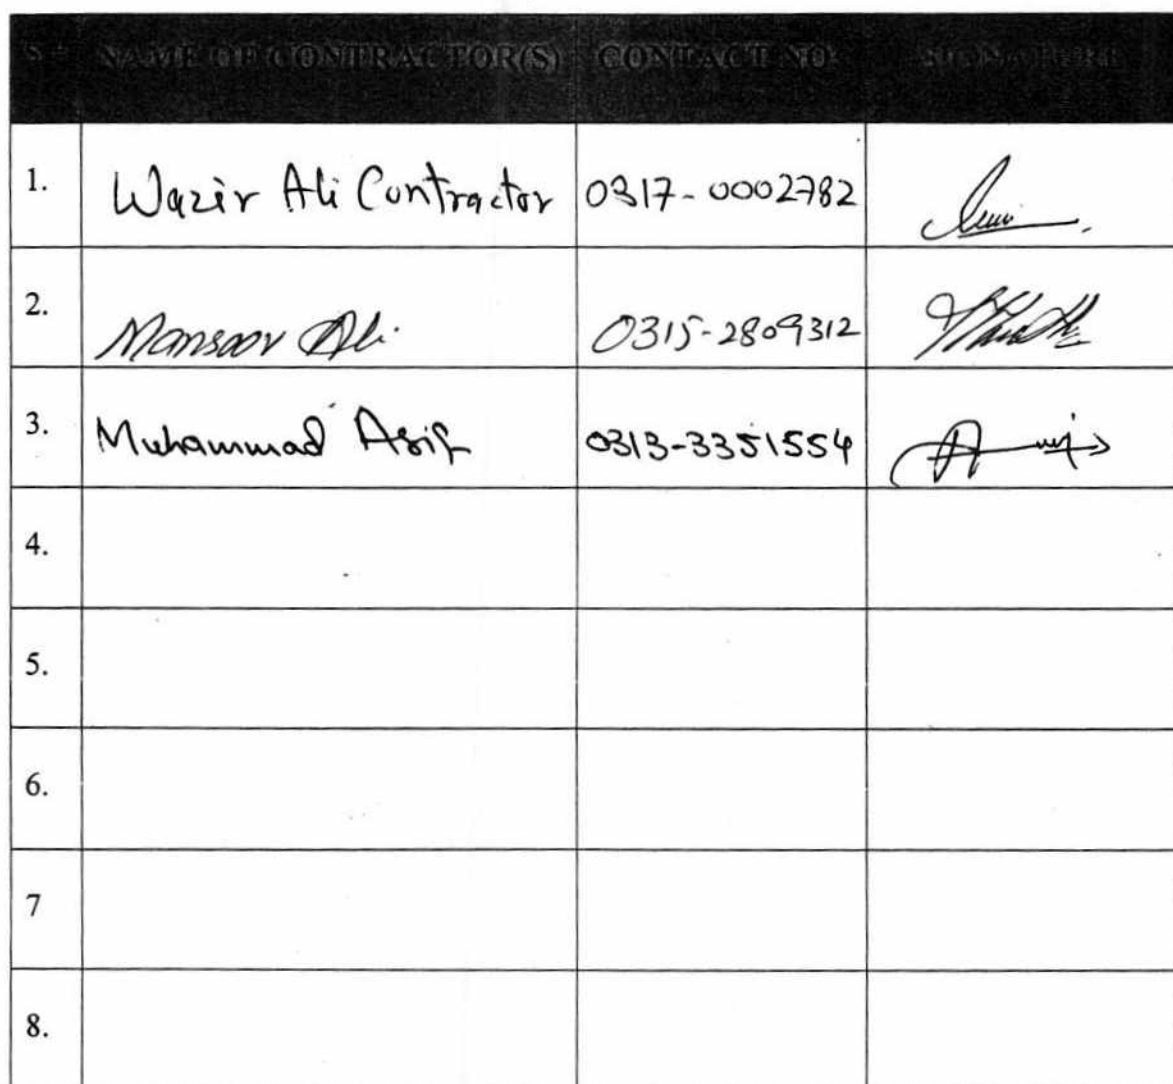 S# NAME OF CONTRACTOR(S) CONTACT NO SIGNATURE
1. Wazir Ali Contractor 0317-0002782
2. Mansoor Ali 0315-2809312
3. Muhammad Asif 0313-3351554
4.
5.
6.
7
8.